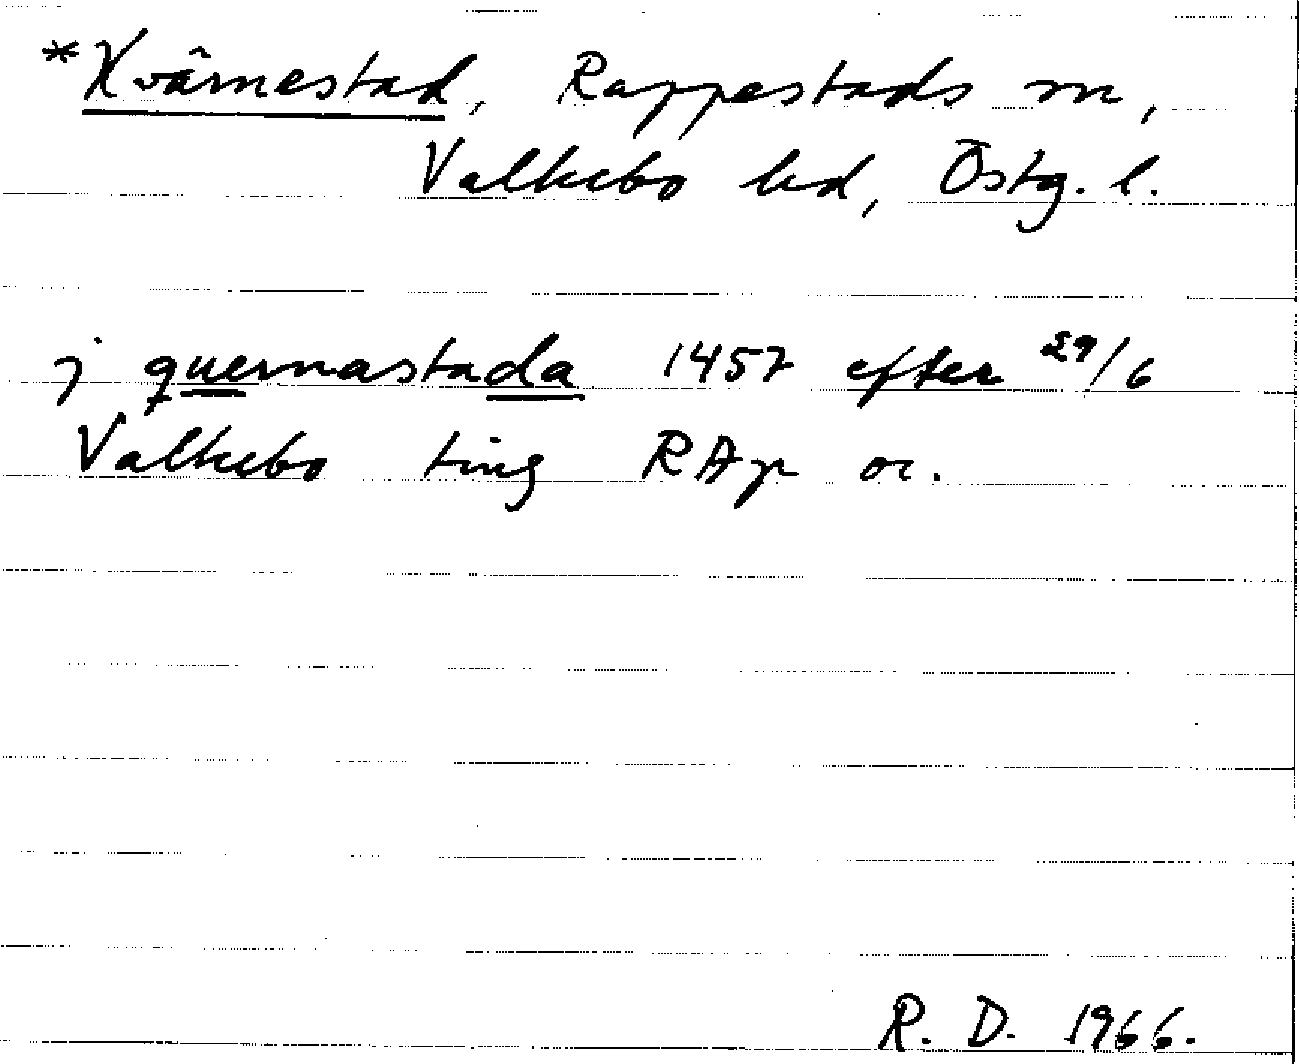 *Kvärnestad, Rappestads sn,
Valkebo hd, Östg. l.
j quernastada 1457 efter 29/6
Valkebo ting RAp or.
R. D. 1966.